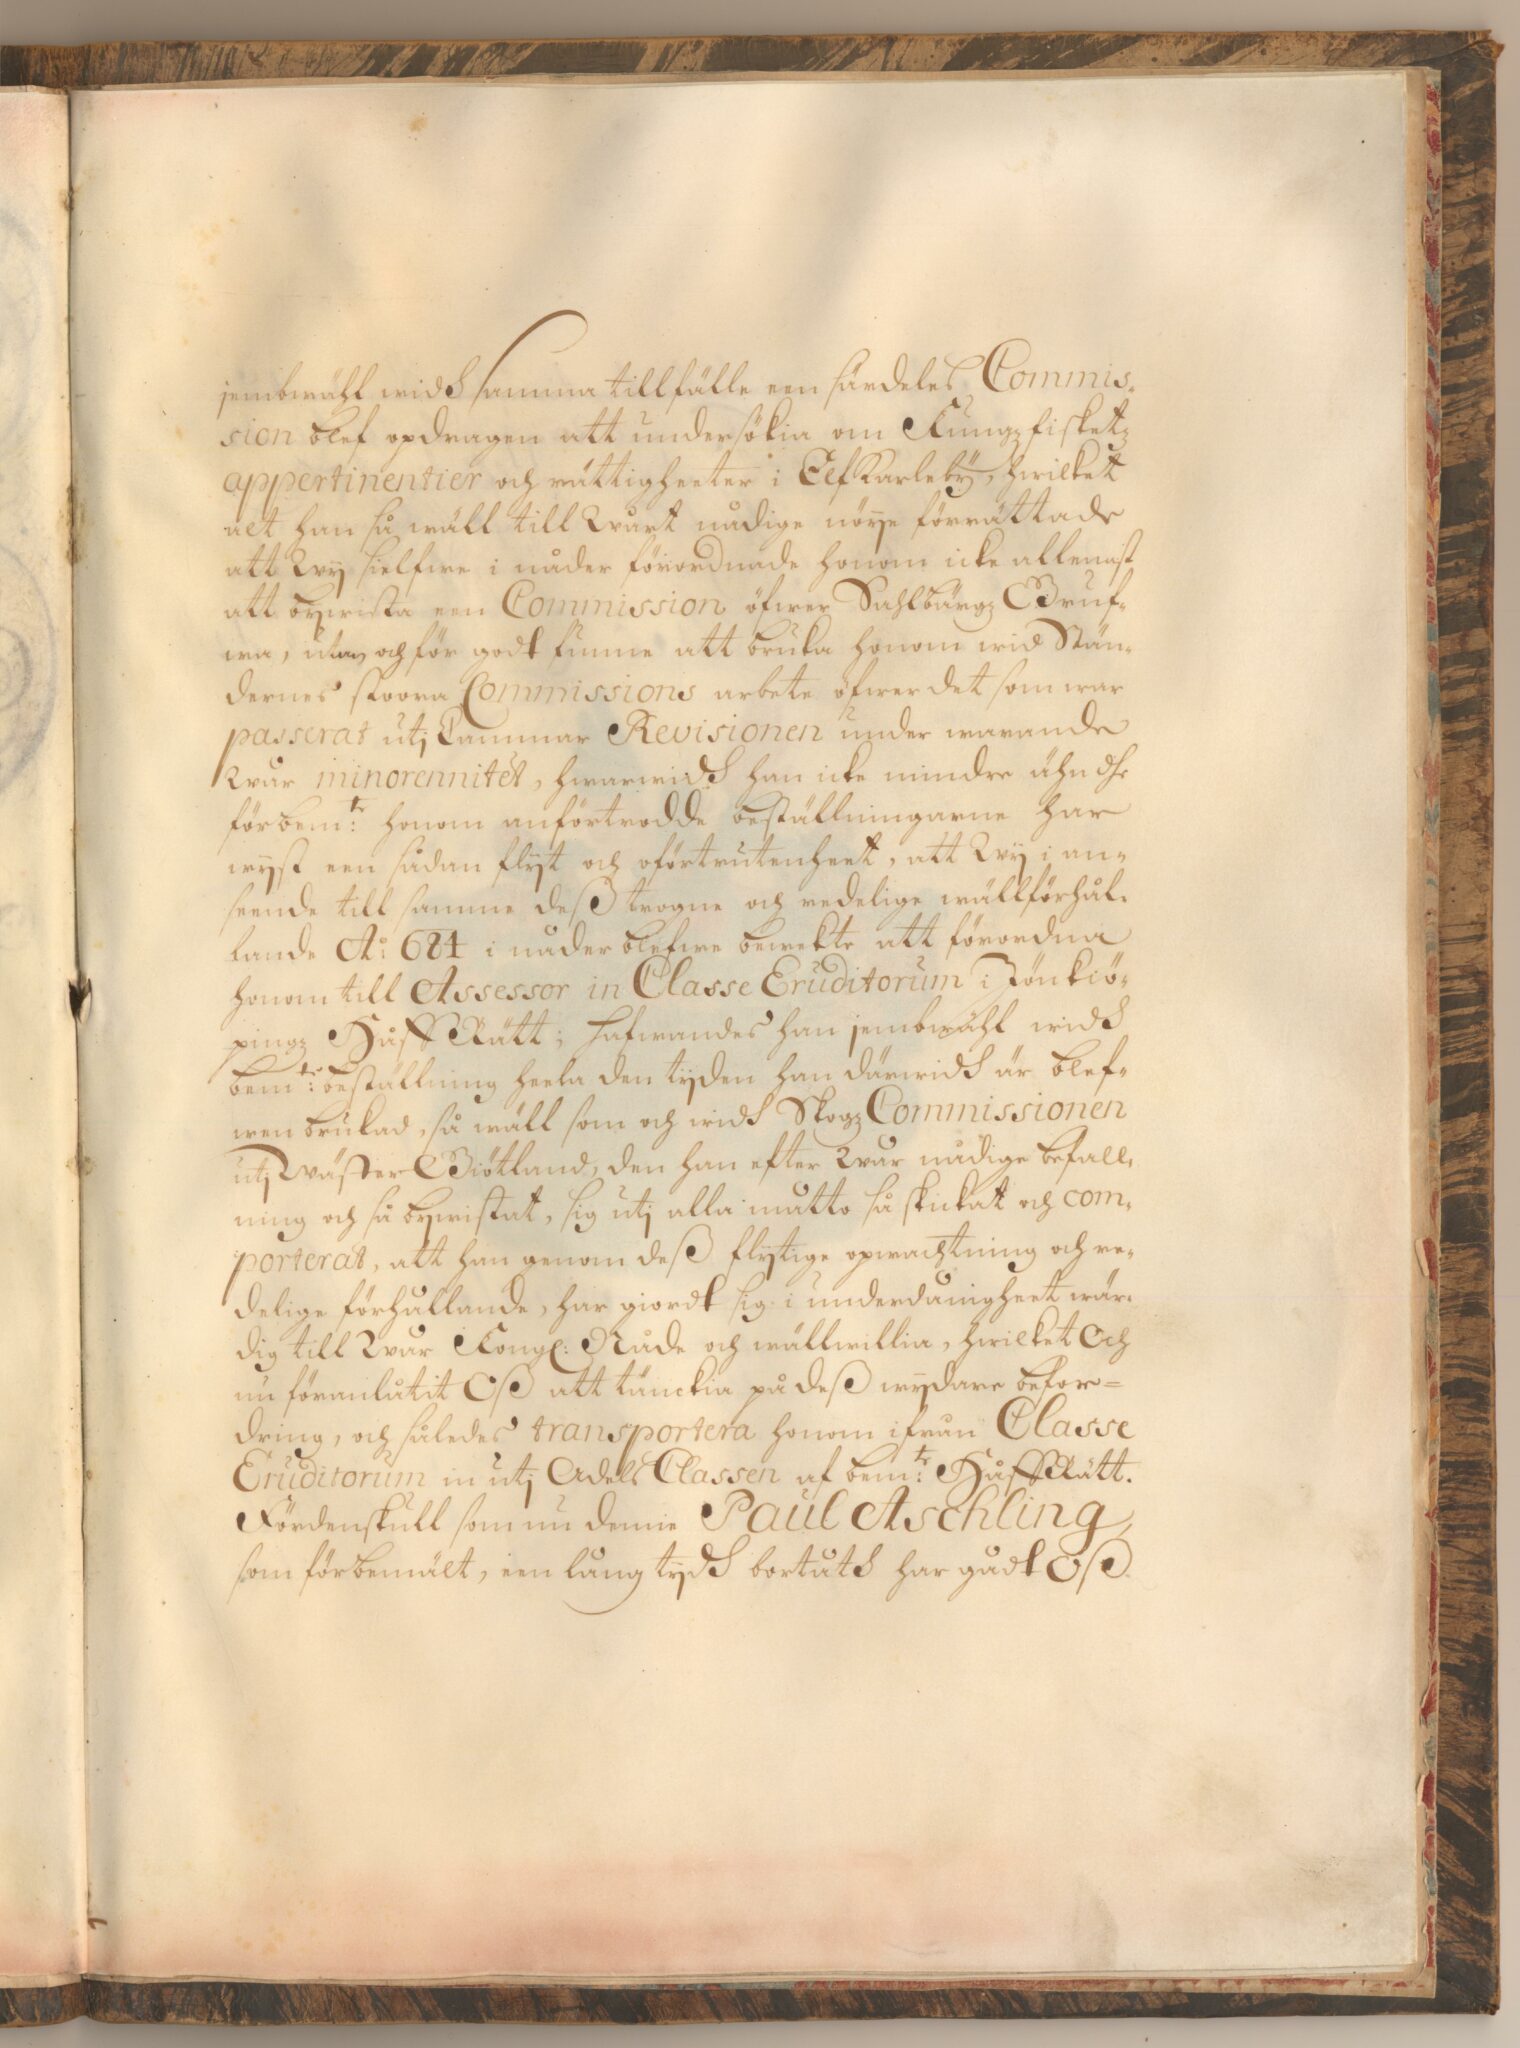 jembwähl widh samma tillfälle een särdeles Commis-
sion blef opdragen att undersökia om Kungzfisketz
appertinentier och rättigheeter i Elf Karleby, hwilket
alt han så wäll till Wårt nådige nöye förrättade
att Wij sielfwe i nåder förordnade honom icke allenast
att bywista een Commission öfwer Sahlbärgz Gruf-
wa, utan och för godt finne att bruka honom wid Stän-
dernes stoora Commissions arbete öfwer det som war
passerat utj Cammar Revisionen under warande
Wår minorennitet, hwarwidh han icke mindre ähn dhe
förbem:te honom anförtrodde beställningarne har
wyst een sådan flyt och oförtrutenheet, att Wij i an-
seende till samme deß trogne och redelige wällförhål-
lande A:o 684 i nåder blefwe bewekte att förordna
honom till Assessor in Classe Eruditorum i Jönkiö-
pingz Håff Rätt; hafwandes han jembwähl widh
bem:te beställning heela den tyden han därwidh är blef-
wen brukad, så wäll som och widh Skogz Commissionen
utj Wäster Giötland, den han efter Wår nådige befall-
ning och så bywistat, sig utj alla måtto så skickat och com-
porterat, att han genom deß flytige opwachtning och re-
delige förhållande, har giordt sig i underdånigheet wär-
dig till Wår Kongl: Nåde och wällwillia, hwilket Och
nu föranlåtit Oß att tänckia på deß wydare befor=
dring, och således transportera honom ifrån Classe
Eruditorum in utj Adels Classen af bem:te Håff Rätt.
Fördenskull som nu denne Paul Aschling,
som förbemält, een lång tydh bortåth har gådt Oß